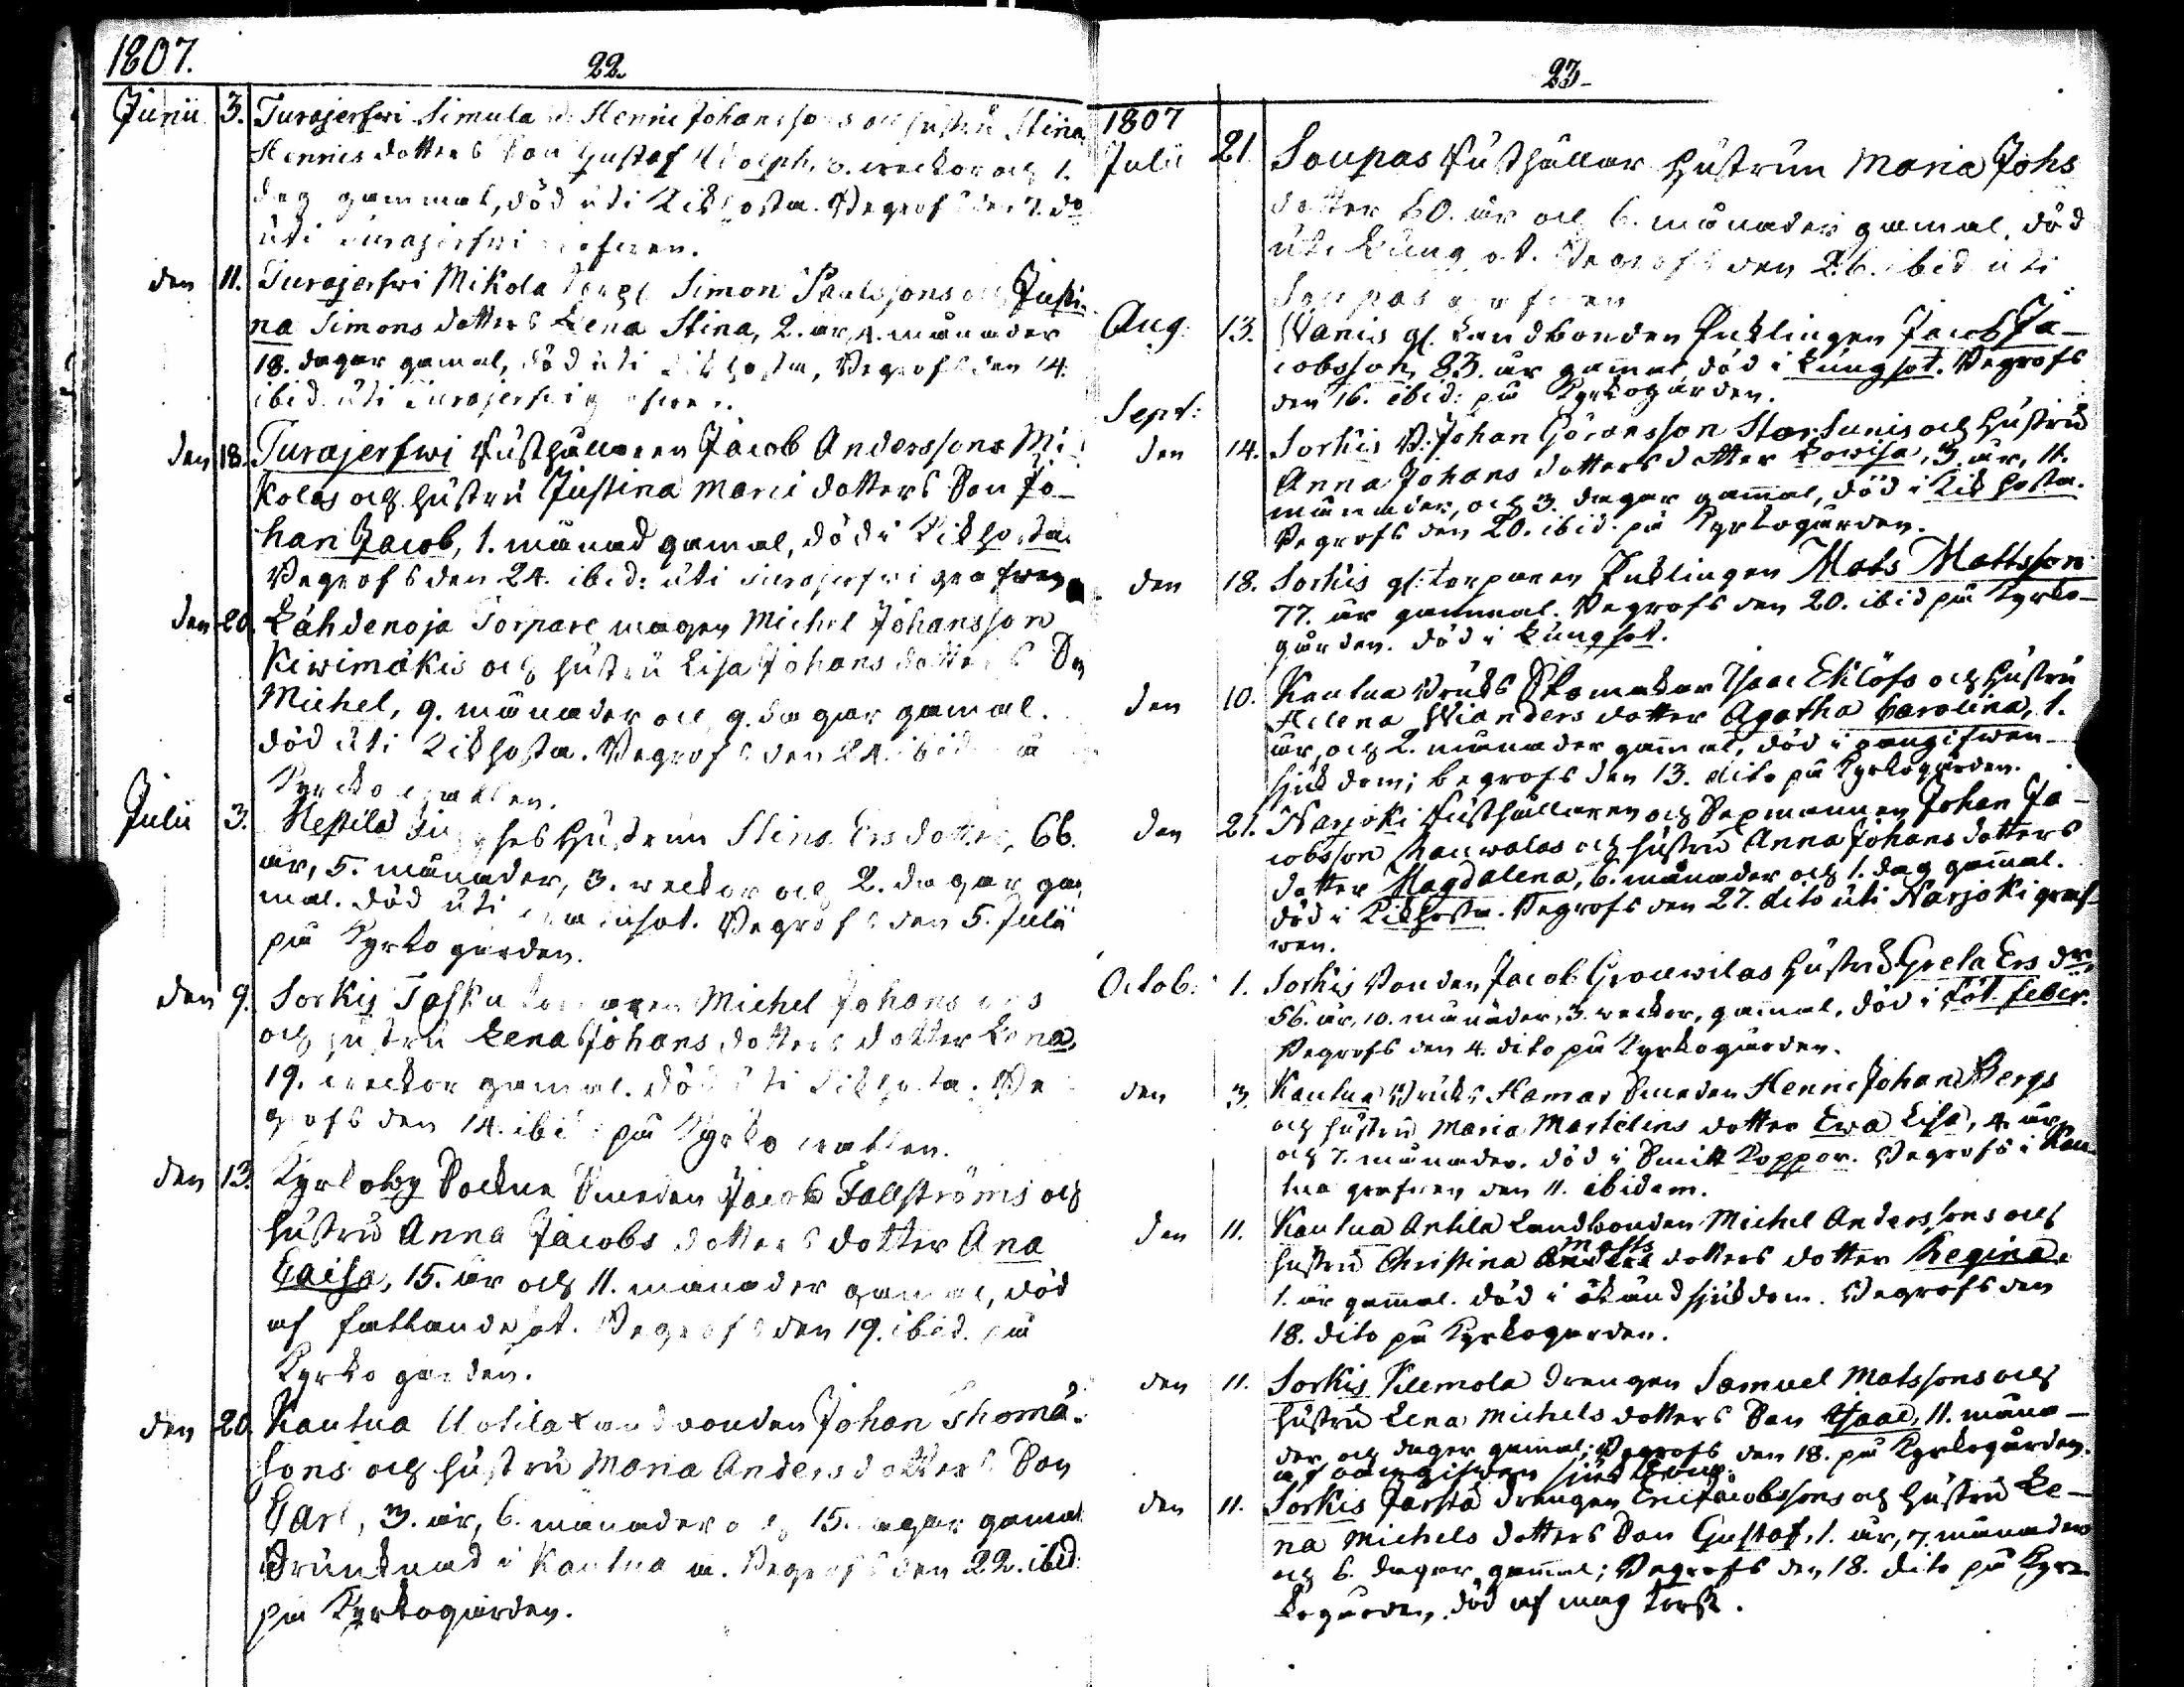 1807.
22.
Junii 3. Turajerfwi Simula Henric Johanssons och hustru Stina
Henrics dotters Son Gustaf Adolph, 3. weckor och 1.
dag gammal, död uti Kikhosta. Begrofs den 7. do
uti Turajerfwi grafwen.
den 11. Turajerfwi Mikola Simon Paulssons och Justi-
na Simons dotters Lena Stina, 2. år, 4. månader
18. dagar gamal, död uti Kikhosta, Begrofs den 14.
ibid. uti Turajerfwi grafwen.
den 18. Turajerfwi Rusthållaren Jacob Anderssons Mi-
kolas och hustru Justina Marci dotters Son Jo-
han Jacob, 1. månad gamal, död i Kikhosta
Begrofs den 24. ibid: uti Turajerfwi grafwen
den 20. Lähdenoja Torpare magen Michel Johansson
Kiwimäkis och hustru Lisa Johans dotters Son
Michel, 9. månader och 9. dagar gamal.
död uti Kikhosta. Begrofs den 24. ibid på
Kyrcko wallen.
Julii 3. Hustrun Stina Ersdotter, 66.
år, 5. månader, 3. weckor och 2. dagar gam
mal. död uti Begrofs den 5. Julii
på Kyrko gården.
den 9. Sorkis Michel Johanssons
och hustru Lena Johans dotters dotter Lena,
19. weckor gamal. död uti Kikhosta. Be
grofs den 14. ibid: på Kyrko wallen.
den 13. Kyrkoby Sockne Smeden Jacob Fallströms och
hustru Anna Jacobs dotters dotter Ana
Caisa, 15. år och 11. månader gamal, död
af fallandesot. Begrofs den 19. ibid. på
Kyrko gården.
den 20. Kautua Uotila Landbonden Johan Thomä-
sons och hustru Maria Anders dotters Son
Carl, 3. år, 6. månader och 15. dagar gamal
Drunknad i Kautua å. Begrofs den 22. ibid:
på Kyrkogården.
23.
1807
Julii 21. Soupas Rusthållar Hustrun Maria Johs
dotter 60. år och 6. månader gamal, död
uti Lungsot. Begrofs den 26. ibid uti
Soupas grafwen
Aug: 13. Wanis gl. Landbonden Inhlingen Jacob Ja-
cobsson, 83. år gamal, död i Lungsot. Begrofs
den 16. ibid: på Kyrkogården.
Sept:
den 14. Sorkis B: Johan Göransson Storsunis och hustru
Anna Johans dotters dotter Lowisa, 3. år, 11.
månader, och 3. dagar gamal, död i Kikhosta.
Begrofs den 20. ibid: på Kyrkogården.
den 18. Sorkis gl: torparen Inhlingen Mats Mattsson
77. år gammal. Begrofs den 20. ibid på Kyrko-
gården. död i Lungsot.
den 10. Kautua Bruks Skomakar Isaac Eklöfs och hustru
Helena Wianders dotter Agatha Carolina, 1.
år, och 2. månader gammal, död i oangifwen
sjukdom; begrofs den 13. dito på Kyrkogården.
den 21. Narjoki Rusthållaren och Sexmannen Johan Ja-
cobsson Knuwalas och hustru Anna Johans dotters
dotter Magdalena, 6. månader och 1. dag gammal.
död i Kikhosta. Begrofs den 27. dito uti Narjoki graf-
wen.
Octob: 1. Sorkis Bonden Jacob Grouwilas hustru Greta Ers dr,
56. år, 10. månader, 3. weckor, gamal. död i Röt feber.
Begrofs den 4. dito på Kyrkogården.
den 3. Kautua Bruks Hamar Smeden Henric Johan Bergs
och hustru Maria Martelins dotter Ewa Lisa, 4 år
och 7. månader. död i Smitt Koppor. Begrofs i Kau-
tua grafwen den 11. ibidem.
den 11. Kautua Antila Landbonden Michel Anderssons och
hustru Christina Matts dotters dotter Regina.
1. år gammal. död i okänd sjukdom. Begrofs den
18. dito på Kyrkogården.
den 11. Sorkis Klemola Drengen Samuel Matssons och
hustru Lena Michels dotters Son Isaac, 11. måna-
der och dagar gamal; Begrofs den 18. på Kyrkogården.
af oangifwen sjukdom.
den 11. Sorkis Jarsta drengen Eric Jacobssons och hustru Le-
na Michels dotters Son Gustaf, 1. år, 7. månader
och 6. dagar gammal; Begrofs den 18. dito på Kyr-
kogården, död af mag torsk.